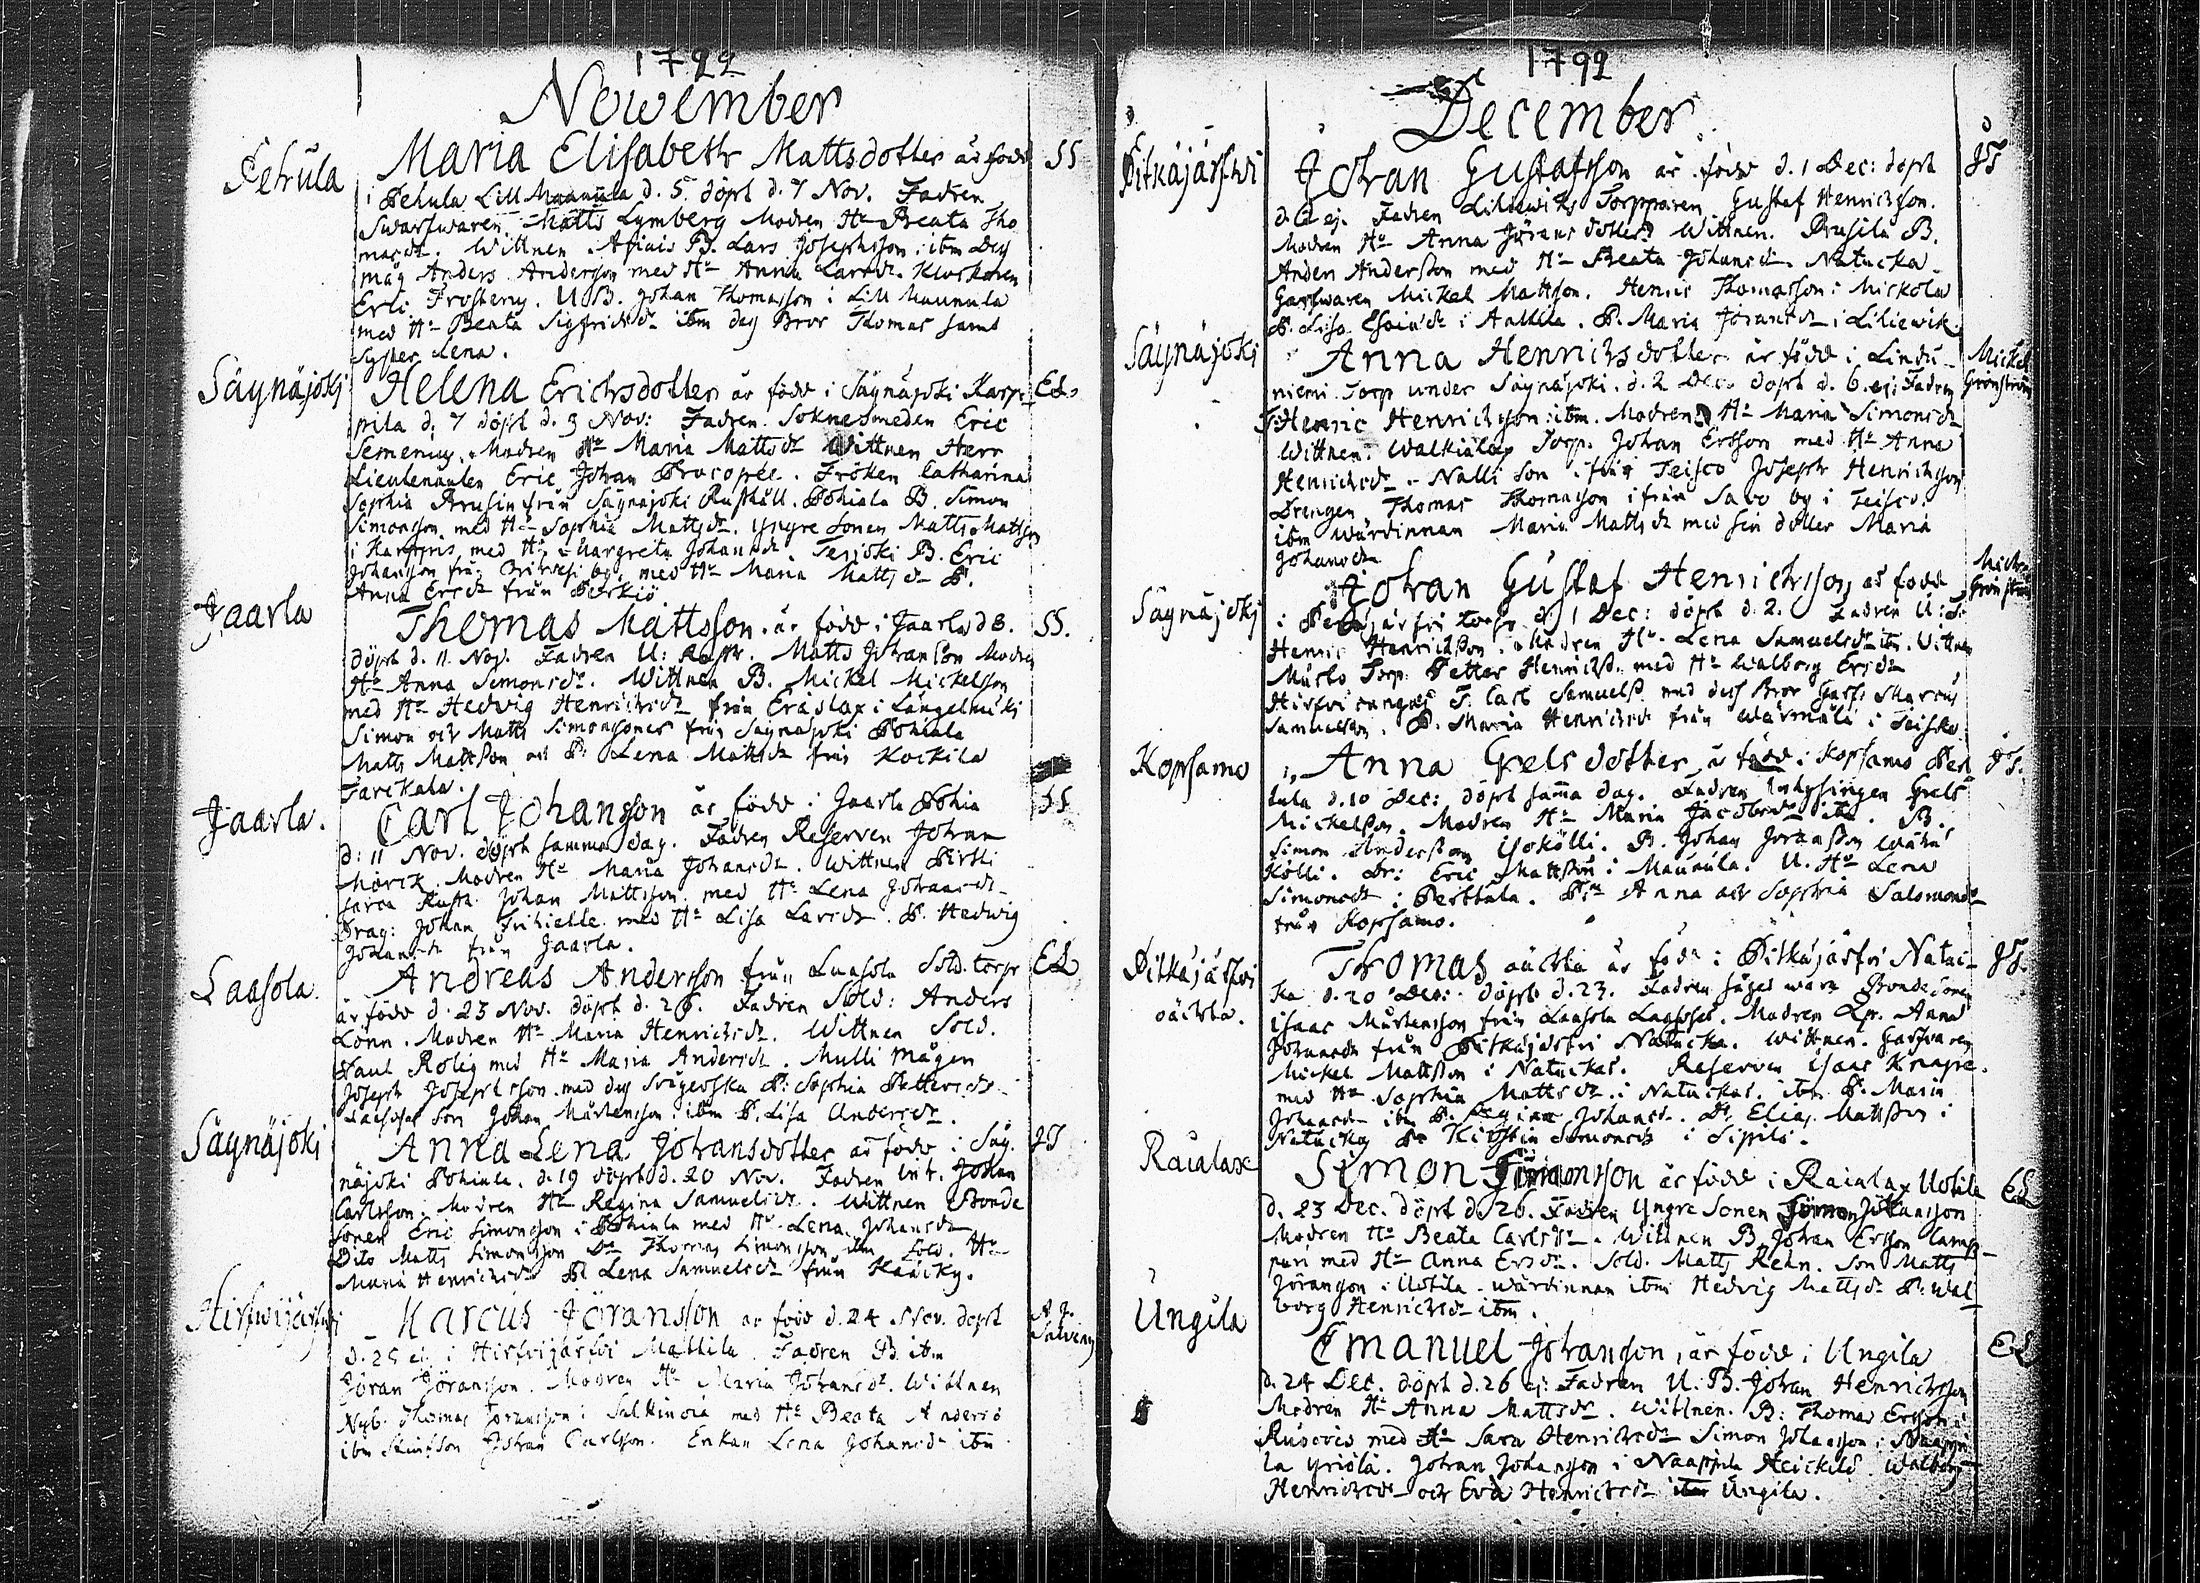 1792
November
Pehula
Maria Elisabeth Mattsdotter är född
SS
i Pehula Lill Maunula d. 5 döpt d. 7 Nov. Fadren
Swarfwaren Matts Lymberg Modren Hu Beata Tho
masdr. Wittnen. B. Lars Josephsson ibm Dess
måg Anders Andersson med Hu Anna Larsdr. Klockaren
Eric Frosterus. U.B. Johan Thomasson i Lill Maunula
med Hu Beata Sigfridsdr ibm dess Bror Thomas samt
Syster Lena.
Säynäjoki
Helena Erichsdotter är född i Säynäjoki Karp
EL
pila d. 7 döpt d. 9 Nov: Fadren Soknesmeden Eric
Semenius. Modren Hu Maria Mattsdr Wittnen Herr
Lieutenanten Eric Johan Procopée. Fröken Catharina
Sophia Brusin från Säynäjoki Rusthåll. Pohiala B. Simon
Simonsson med Hu Sophia Mattsdr. Yngre Sonen Matts Mattsson
i med Hu Margreta Johansdr. B. Eric
Johansson från by med Hu Maria Mattsdr P.
Anna Ersdr från
Jaarla
Thomas Mattsson är född i Jaarla d 8.
SS.
döpt d. 11. Nov. Fadren U: Matts Johansson Modren
Hu Anna Simonsdr. Wittnen B. Mickel Mickelsson
med Hu Hedvig Henrichsdr från Eräslax i Längelmäki
Simon och Matts Simonssöner från Säynäjoki Pohiala
Matts Mattsson och P. Lena Mattsdr från Kockila
Tarckala.
Jaarla.
Carl Johansson är född i Jaarla Pohia
SS
d: 11 Nov. döpt samma dag. Fadren Reserven Johan
Mörck. Modren Hu Maria Johansdr. Wittnen Pirtti
Rusth. Johan Mattsson med Hu Lena Johansdr.
Drag: Johan med Hu Lisa Larsdr. P. Hedwig
Johansdr från Jaarla.
Laasola.
Andreas Andersson från Laasola Sold. torp
EL
är född d. 23 Nov. döpt d. 25. Fadren Sold: Anders
Lönn. Modren Hu Maria Henrichsdr. Wittnen Sold.
Paul Rolig med Hu Maria Andersdr. Mulli Mågen
Joseph Josephsson med dess Svägerska P: Sophia Pettersdr.
Son Johan Mårtensson ibm P. Lisa Andersdr.
Säynäjoki
Anna Lena Johansdotter är född i Säy
JT
näjoki Pohiala. d. 19 döpt d. 20 Nov. Fadren Inh. Johan
Carlsson. Modren Hu Regina Samuelsdr. Wittnen Bonde
Sonen Eric Simonsson i Pohiala med Hu Lena Johansdr
Dito Matts Simonsson Do Thomas Simonsson ibm Sold. Hu
Maria Henrichsdr P. Lena Samuelsdr från
Hirfwijärfwi
Marcus Jöransson är född d. 24 Nov. döpt
d. 25 ej. i Hirfvijärfvi Mattila Fadren B. ibm
Jöran Jöransson. Modren Hu Maria Johansdr. Wittnen
Nyb. Thomas Jöransson i med Hu Beata Andersd
ibm Johan Carlsson. Enkan Lena Johansdr ibm
1792
December
Pitkäjärfwi
Johan Gustafsson är född d. 1 Dec: döpt
JT
d. 2 ej. Fadren Liliewiks Torpparen Gustaf Henrichsson.
Modren Hu Anna Jöransdotter Wittnen. Prusila B.
Anders Andersson med Hu Beata Johansdr. Natucka
Garfwaren Mickel Mattsson. Henric Thomasson i Mickola
P. Lisa i Anttila. P. Maria Jöransdr i Liliewik.
Säynäjoki
Anna Henrichsdotter är född i Lindu
Mickel
Grönström
niemi Torp under Säynäjoki. d. 2 Dec. döpt d. 6. ej. Fadren
T. Henric Henrichsson ibm. Modren Hu Maria Simonsdr
Wittnen. Torp. Johan Ersson med Hu Anna
Henrichsdr. Nalli Son från Teisco Joseph Henrichsson
Drengen Thomas Thomasson ifrån Savo by i Teisco.
ibm Wärdinnan Maria Mattsdr med sin dotter Maria
Johansdr
Säynäjoki
Johan Gustaf Henrichsson är född
Mich.
Grönström
i torp d. 1 Dec: döpt d. 2. Fadren U: T.
Henric Henrichsson. Modren Hu. Lena Samuelsdr ibm. Wittnen
Torp. Petter Henrichss. med Hu Walborg Ersdr
T. Carl Samuelss. med dess Bror Garfv. Marcus
Samuelsson. P. Maria Henrichsdr från Wärmälä i Teisko
Kopsamo
Anna Grelsdotter är född i Kopsamo Pert
JT.
tula d. 10 Dec: döpt samma dag. Fadren Inhysingen Grels
Mickelsson. Modren Hu Maria Jacobsdr ibm. B.
Simon Andersson Isokölli. B. Johan Johansson Wähä
Kölli. Dr: Eric Mattsson i Maunula. U. Hu Lena
Simonsdr i Perttula. P:r Anna och Sophia Salomonsdr
från Kopsamo.
Pitkäjärfvi
oäckta.
Thomas oäckta är född i Pitkäjärfvi Natuc
JT.
ka d. 20 Dec: döpt d. 23. Fadren säges vara Bonde Sonen
Isaac Mårtensson från Laasola. Modren Lp. Anna
Johansdr från Pitkäjärfvi Natucka. Wittnen. Garfvaren
Mickel Mattsson i Natuckas. Reserven Isaac Knape.
med Hu Sophia Mattsdr. i Natuckas. ibm P. Maria
Johansdr ibm P. Regina Johansd. Dr. Elias Mattsson i
Natucka P. Kirstin Simonsdr i Sipili.
Raialax
Simon Simonsson är född i Raialax Uotila
EL
d. 23 Dec. döpt d. 26. Fadren Yngre Sonen Simon Johansson
Modren Hu Beata Carlsdr. Wittnen B. Johan Ersson Lamp
pari med Hu Anna Ersdr. Sold. Matts Rehn. Son Matts
Jöransson i Uotila. Wärdinnan ibm Hedvig Mattsdr. P: Wal
borg Henrichsdr ibm.
Ungila
Emanuel Johansson, är född i Ungila
EL
d. 24 Dec. döpt d. 26 ej. Fadren U: B. Johan Henrichsson
Modren Hu Anna Mattsdr. Wittnen. B: Thomas Ersson i
Rusovis med Hu Sara Henrichsdr Simon Johansson i Naappi
la Yriölä. Johan Johansson i Naappila Heickilä. Walborg
Henrichsdr och Eva Henrichsdr ibm Ungila.